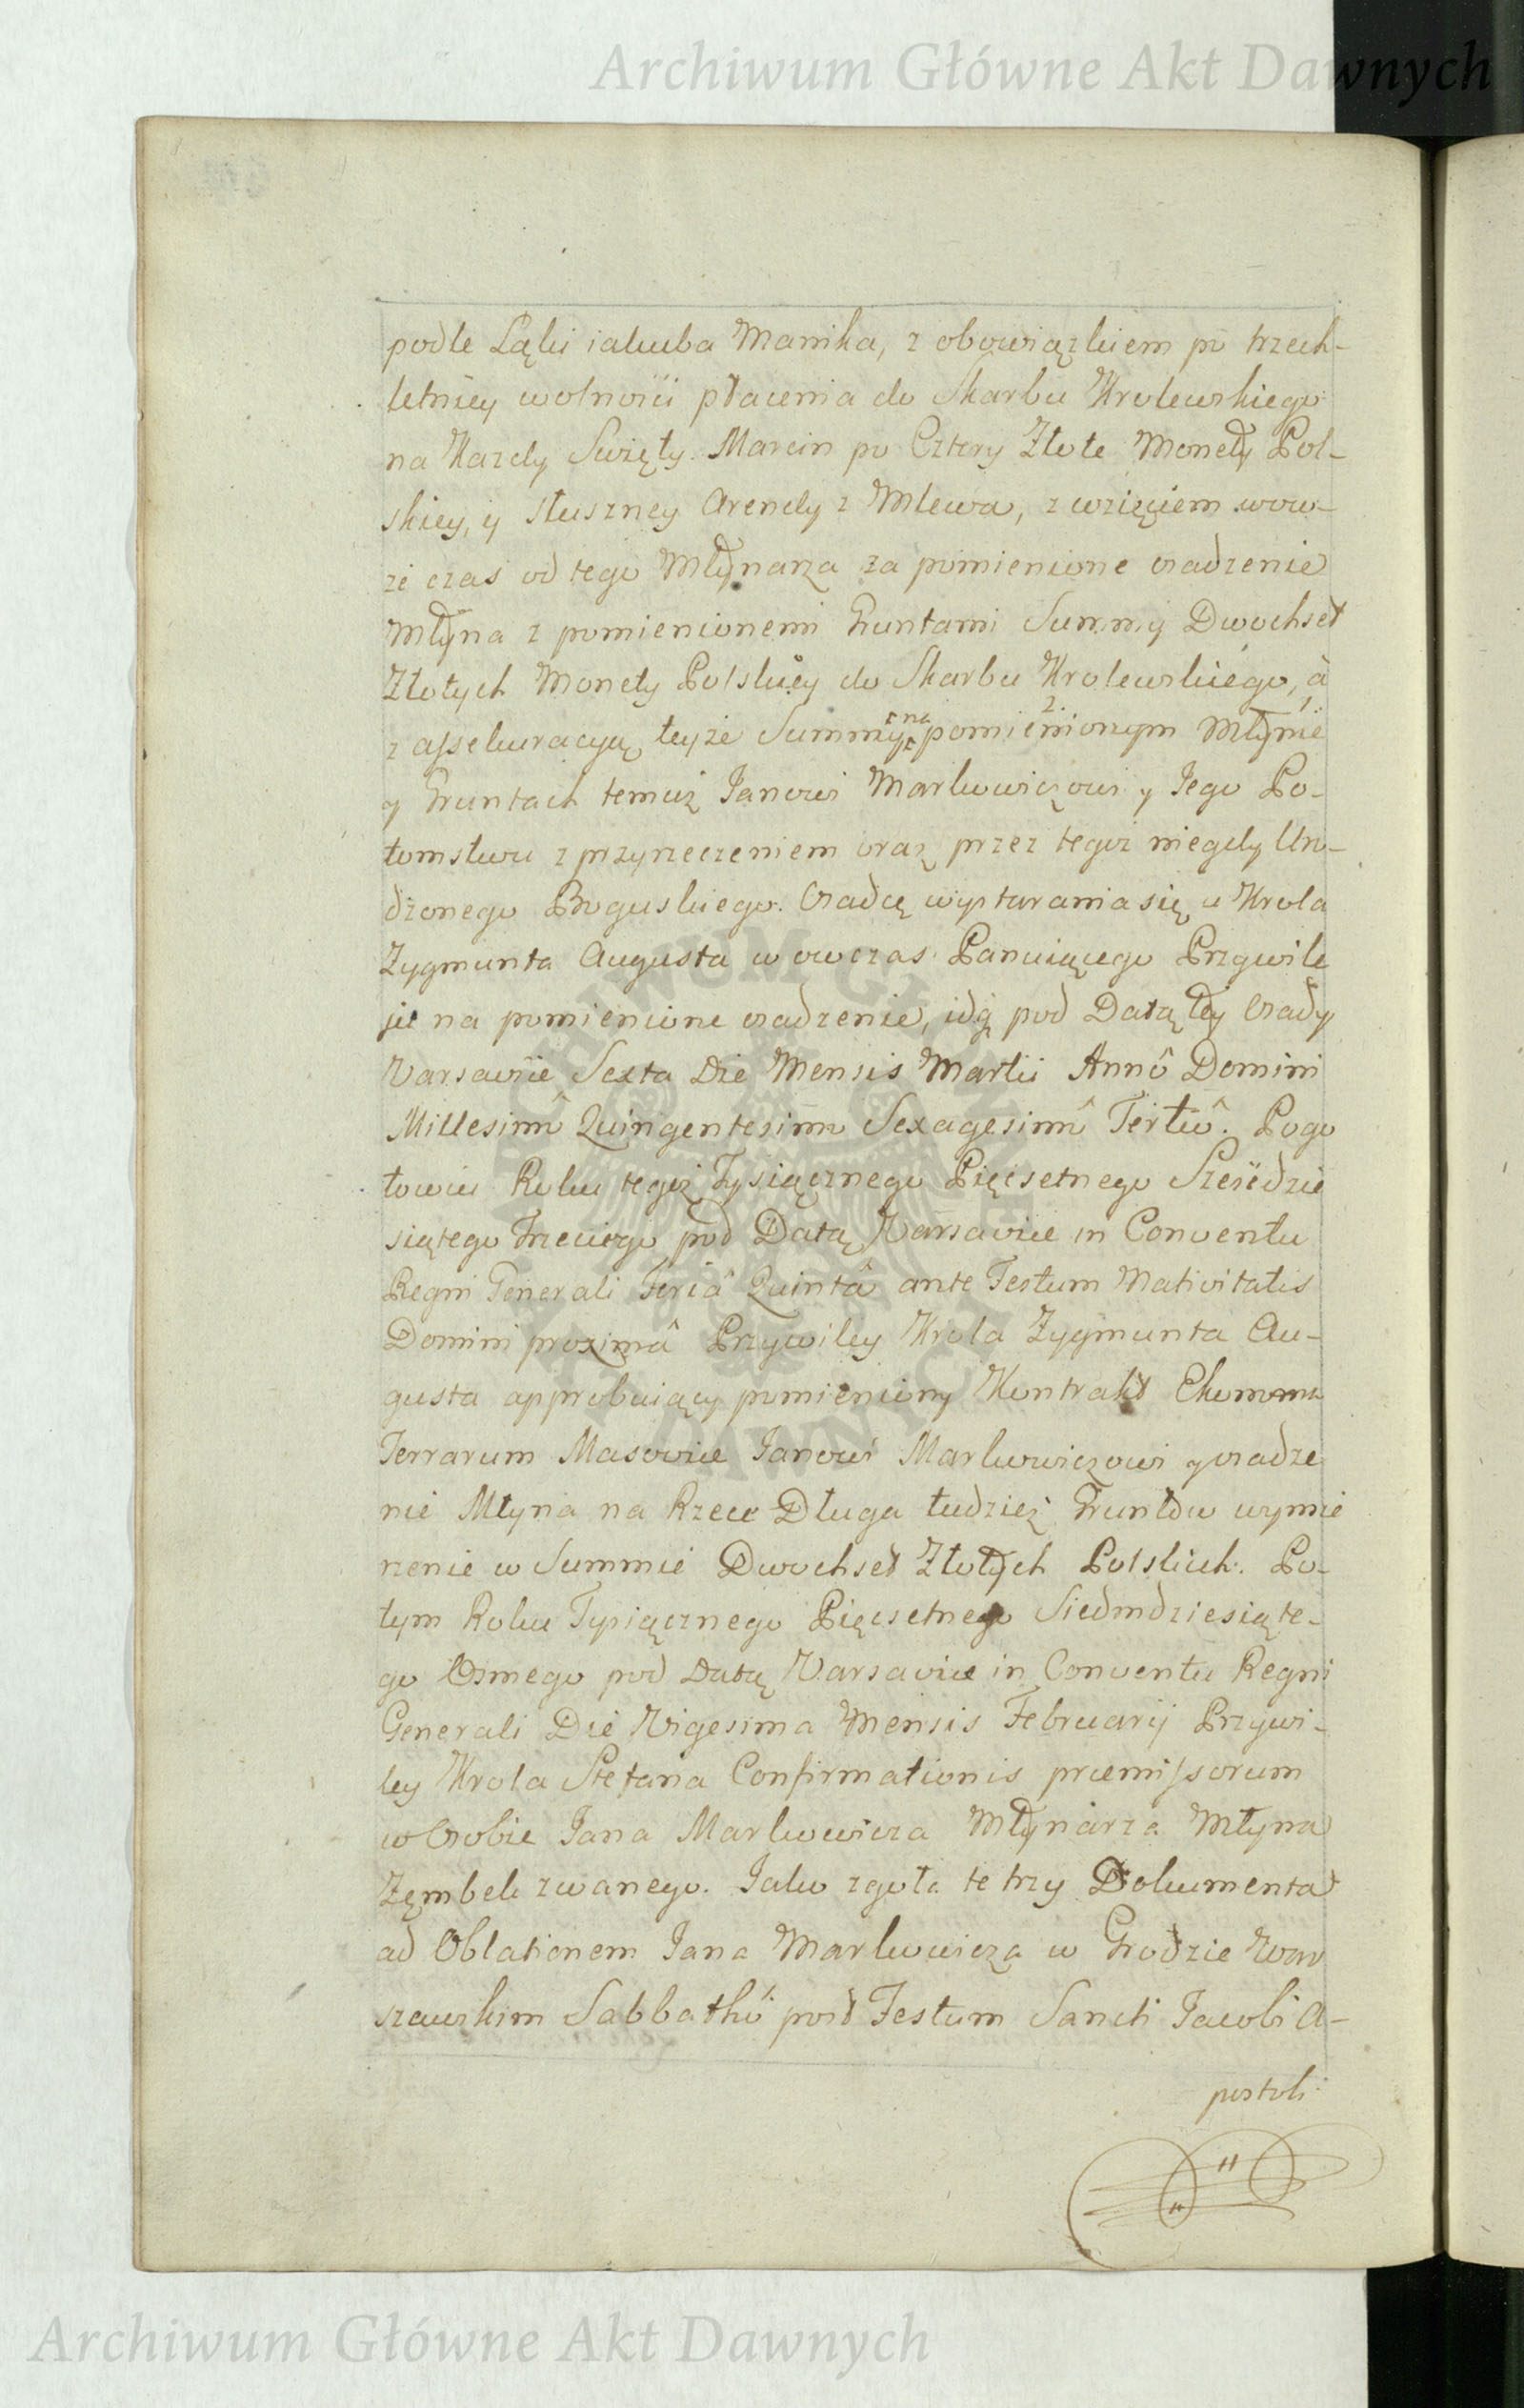 Archiwum Główne Akt Dawnych
podle Łąki iakuba Manika, z obowiązkiem po trzech-
letniey wolności płacenia do Skarbu Krolewskiego
na Kazdy Swięty Marcin po Cztery Złote Monety Pol-
skiey, y słuszney Arendy z Mlewa, z wzięciem wow-
ze czas od tego Młynarza za pomienione osadzenie
Młyna z pomienionemi Gruntami Summy Dwochset
Złotych Monety Polskiey do Skarbu Krolewskiego, à
z assekuracyą teyże Summy na pomienionym Młynie
y Gruntach temuż Janowi Markowiczowi y Jego Po-
tomstwu z przyrzeczeniem oraz przez tegoż niegdy Uro-
dzonego Boguskiego Osadcę wystarania się u Krola
Zygmunta Augusta wowczas Panuiącego Przywile
ju na pomienione osadzenie, idą pod Datą tey Osady
Varsaviæ Sexta Die Mensis Martii Annô Domini
Millesimô Quingentesimô Sexagesimô Tertiô. Pogo
towiu Roku tegoż Tysiącznego Pięćsetnego Sześćdzie
siątego Trzeciego pod Datą Varsaviæ in Conventu
Regni Generali Feriâ Quintâ ante Festum Nativitatis
Domini proximâ Przywiley Krola Zygmunta Au-
gusta approbuiący pomieniony Kontrakt Ekonoma
Terrarum Masoviæ Janowi Markowiczowi y osadze
nie Młyna na Rzece Długa tudzież Gruntow wymie
nienie w Summie Dwochset Złotych Polskich. Po-
tym Roku Tysiącznego Pięćsetnego Siedmdziesiąte-
go Osmego pod Datą Varsaviæ in Conventu Regni
Generali Die Vigesima Mensis Februarij Przywi-
ley Krola Stefana Confirmationis præmissorum
w Osobie Jana Markowicza Młynarza Młyna
Zęmbek zwanego. Jako zgoła te trzy Dokumenta
ad Oblationem Jana Markowicza w Grodzie War
szawskim Sabbathô post Festum Sancti Jacobi A-
postoli
Archiwum Główne Akt Dawnych